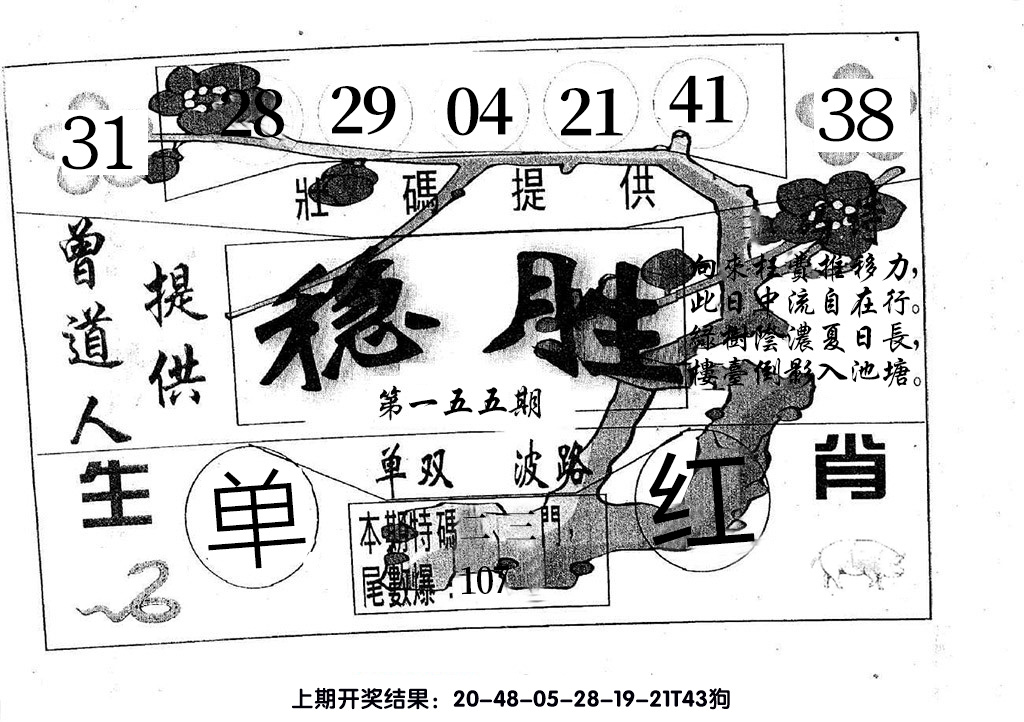 31 28 29 04 21 41 38
壯碼提供
曾道人
提供
特
穩胜
第一五五期
向來枉費推移力,
此日中流自在行。
綠樹陰濃夏日長,
樓臺倒影入池塘。
生肖
单双 波路
单 红
本期特碼二、三門,
尾數爆:107
上期开奖结果:20-48-05-28-19-21T43狗